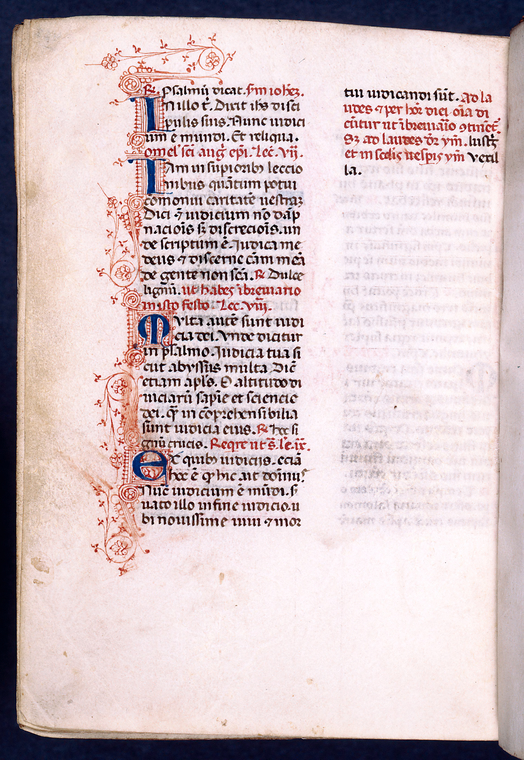 R. Psalmū dicat. scđm ioheȝ.
In illo t̄. Dixit ihs disci
pulis suis. Nunc iudici
um ē mundi. Et reliqua.
omel sc̄i auḡ ep̄i. Lec. vij.
Iam in superiorib lectio
nibus quātum potui
comonui caritatē vestraȝ
Dici ⁊ iudicium nō dāp
nacioīs sȝ discrecioīs. un
de scriptum ē. Iudica me
deus ⁊ discerne cām meā
de gente non scā. R. Dulce
lignū. ut habes ī breuiario
in isto festo. Lec. viij.
Multa autē sunt iudi
cia dei. Vnde dicitur
in psalmo. Iudicia tua si
cut abyssus multa. Dic̄
etiam apl̄s. O altitudo di
uiciarū sapīe et sciencie
dei. q̄ incōprehensibilia
sunt iudicia eius. R. hoc si
gnū crucis. Reqr̄e ut s̄. Le. ix.
Ex quibȝ iudiciis. eciā
hoc ē qḥ hic ait domīu᷒
Nūc iudicium ē mūdi. s̄
uato illo in fine iudicio. u
bi nouissime uiui ⁊ mor
tui iudicandi sūt. Ad la
udes ⁊ per hōr diei oīa di
cūtur ut ī breuiario ꝯtinēt᷑.
Sȝ ad laudes dr̄ ym̄. lustȝ
et in scd̄is vesp̄is ym̄ vexil
la.